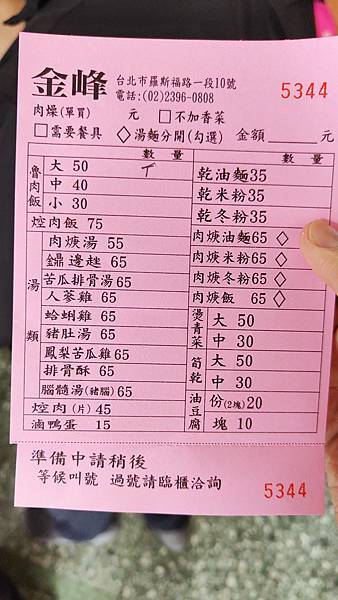 金峰 台北市羅斯福路一段10號
電話:(02)2396-0808
5344
肉燥(單買) 元 □不加香菜
□需要餐具 ◇湯麵分開(勾選) 金額____元
數量 數量
魯肉飯
大 50
中 40
小 30
焢肉飯 75
湯類
肉羹湯 55
鼎邊趖 65
苦瓜排骨湯65
人蔘雞 65
蛤蜊雞 65
豬肚湯 65
鳳梨苦瓜雞65
排骨酥 65
腦髓湯(豬腦)65
焢肉(片)45
滷鴨蛋 15
乾油麵35
乾米粉35
乾冬粉35
肉羹油麵65 ◇
肉羹米粉65 ◇
肉羹冬粉65 ◇
肉羹飯 65 ◇
燙青菜
大 50
中 30
筍乾
大 50
中 30
油豆腐
份(2塊)20
塊 10
準備中請稍後
等候叫號 過號請臨櫃洽詢
5344